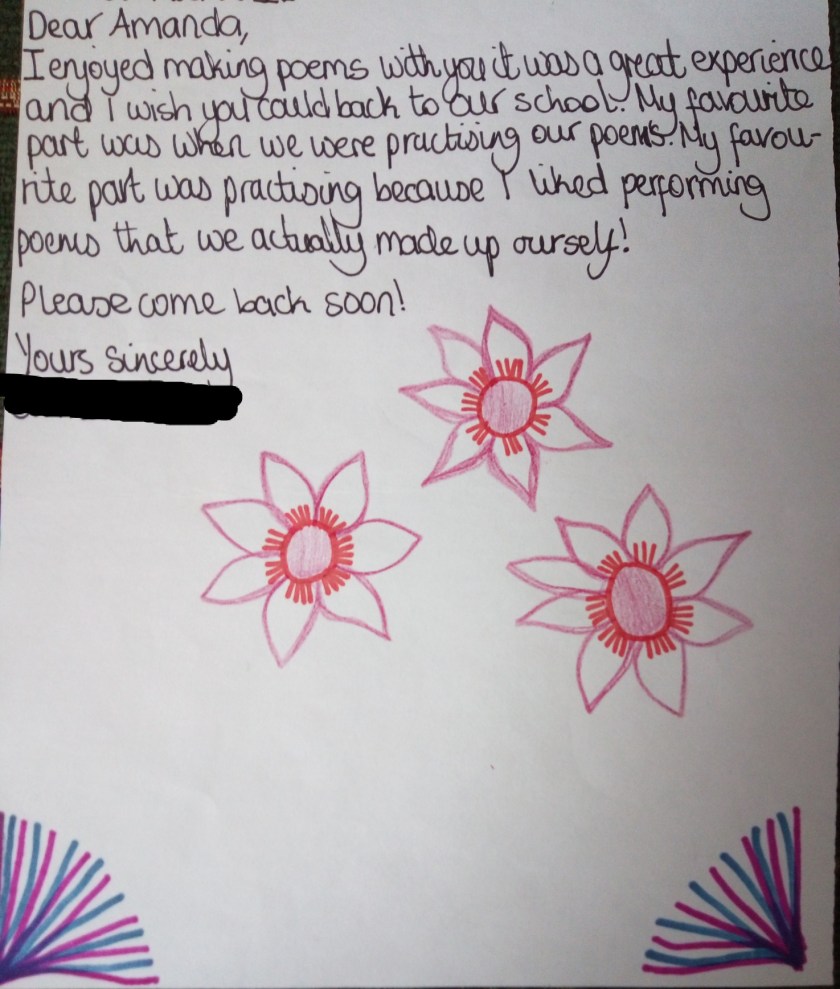 Dear Amanda,
I enjoyed making poems with you it was a great experience
and I wish you could back to our school. My favourite
part was when we were practising our poems. My favou-
rite part was practising because I liked performing
poems that we actually made up ourself!
Please come back soon!
Yours sincerely